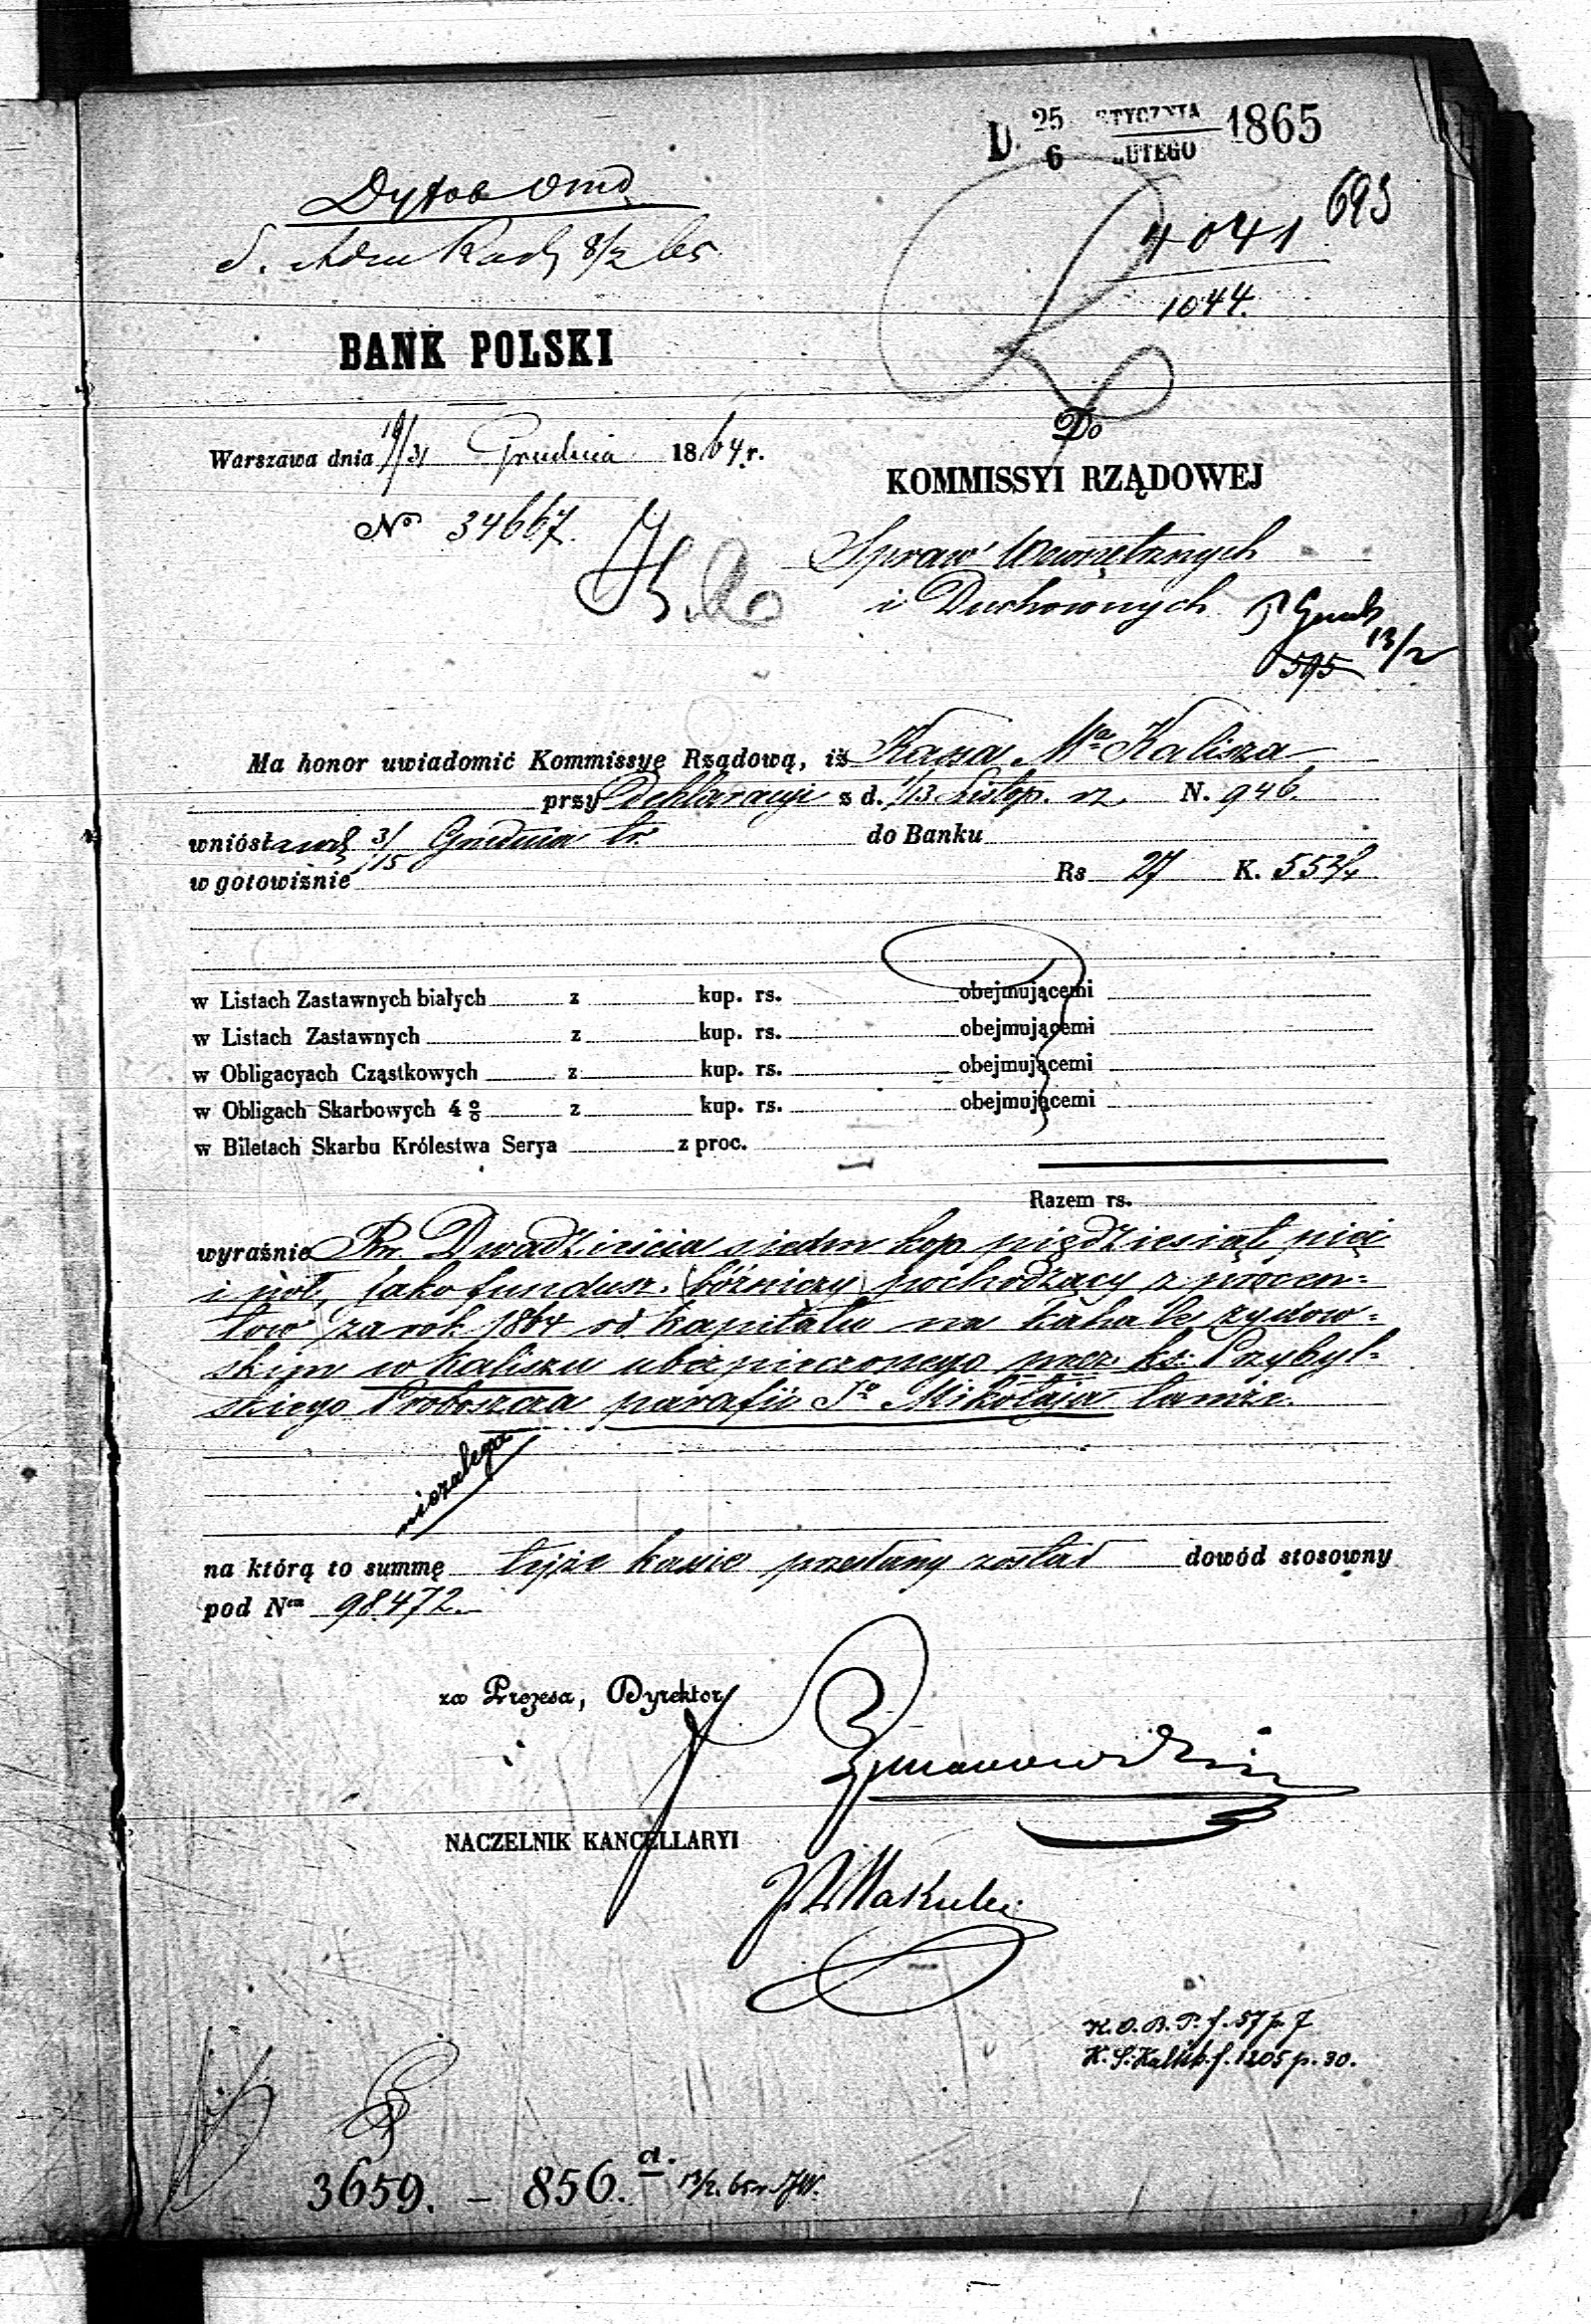 D. 25/6 STYCZNIA/LUTEGO 1865
693
4041
1044.
8/2 65
BANK POLSKI
Warszawa dnia 19/31 Grudnia 1864 r.
No 34667.
Do
KOMMISSYI RZĄDOWEJ
Spraw Wewnętrznych
i Duchownych
13/2
595
Ma honor uwiadomić Kommissyę Rządową, iż Kassa Mta Kalisza
przy Deklaracyi z d. 1/13 Listop. rz. N. 946.
wniósła 3/15 Grudnia tr. do Banku
w gotowiźnie Rs 27 K. 55½
w Listach Zastawnych białych z kup. rs. obejmującemi
w Listach Zastawnych z kup. rs. obejmującemi
w Obligacyach Cząstkowych z kup. rs. obejmującemi
w Obligach Skarbowych 4 % z kup. rs. obejmującemi
w Biletach Skarbu Królestwa Serya z proc.
Razem rs.
wyraźnie Rsr. Dwadzieścia siedm kop. pięćdziesiąt pięć
i pół, jako fundusz bóżniczy pochodzący z procen=
tow za rok 1864 od kapitału na kahale żydow=
skim w Kaliszu ubezpieczonego przez ks. Przybyl=
skiego Proboszcza parafii Sgo Mikołaja tamże.
niezalega
na którą to summę tejże kassie przesłany został dowód stosowny
pod Nem 98.472.
za Prezesa, Dyrektor
NACZELNIK KANCELLARYI
J Makulec
K. O. B. P. f. 57 p. 7
K. S. Kalisk. f. 1205 p. 30.
3659. – 856. a. 13/2. 65 r.